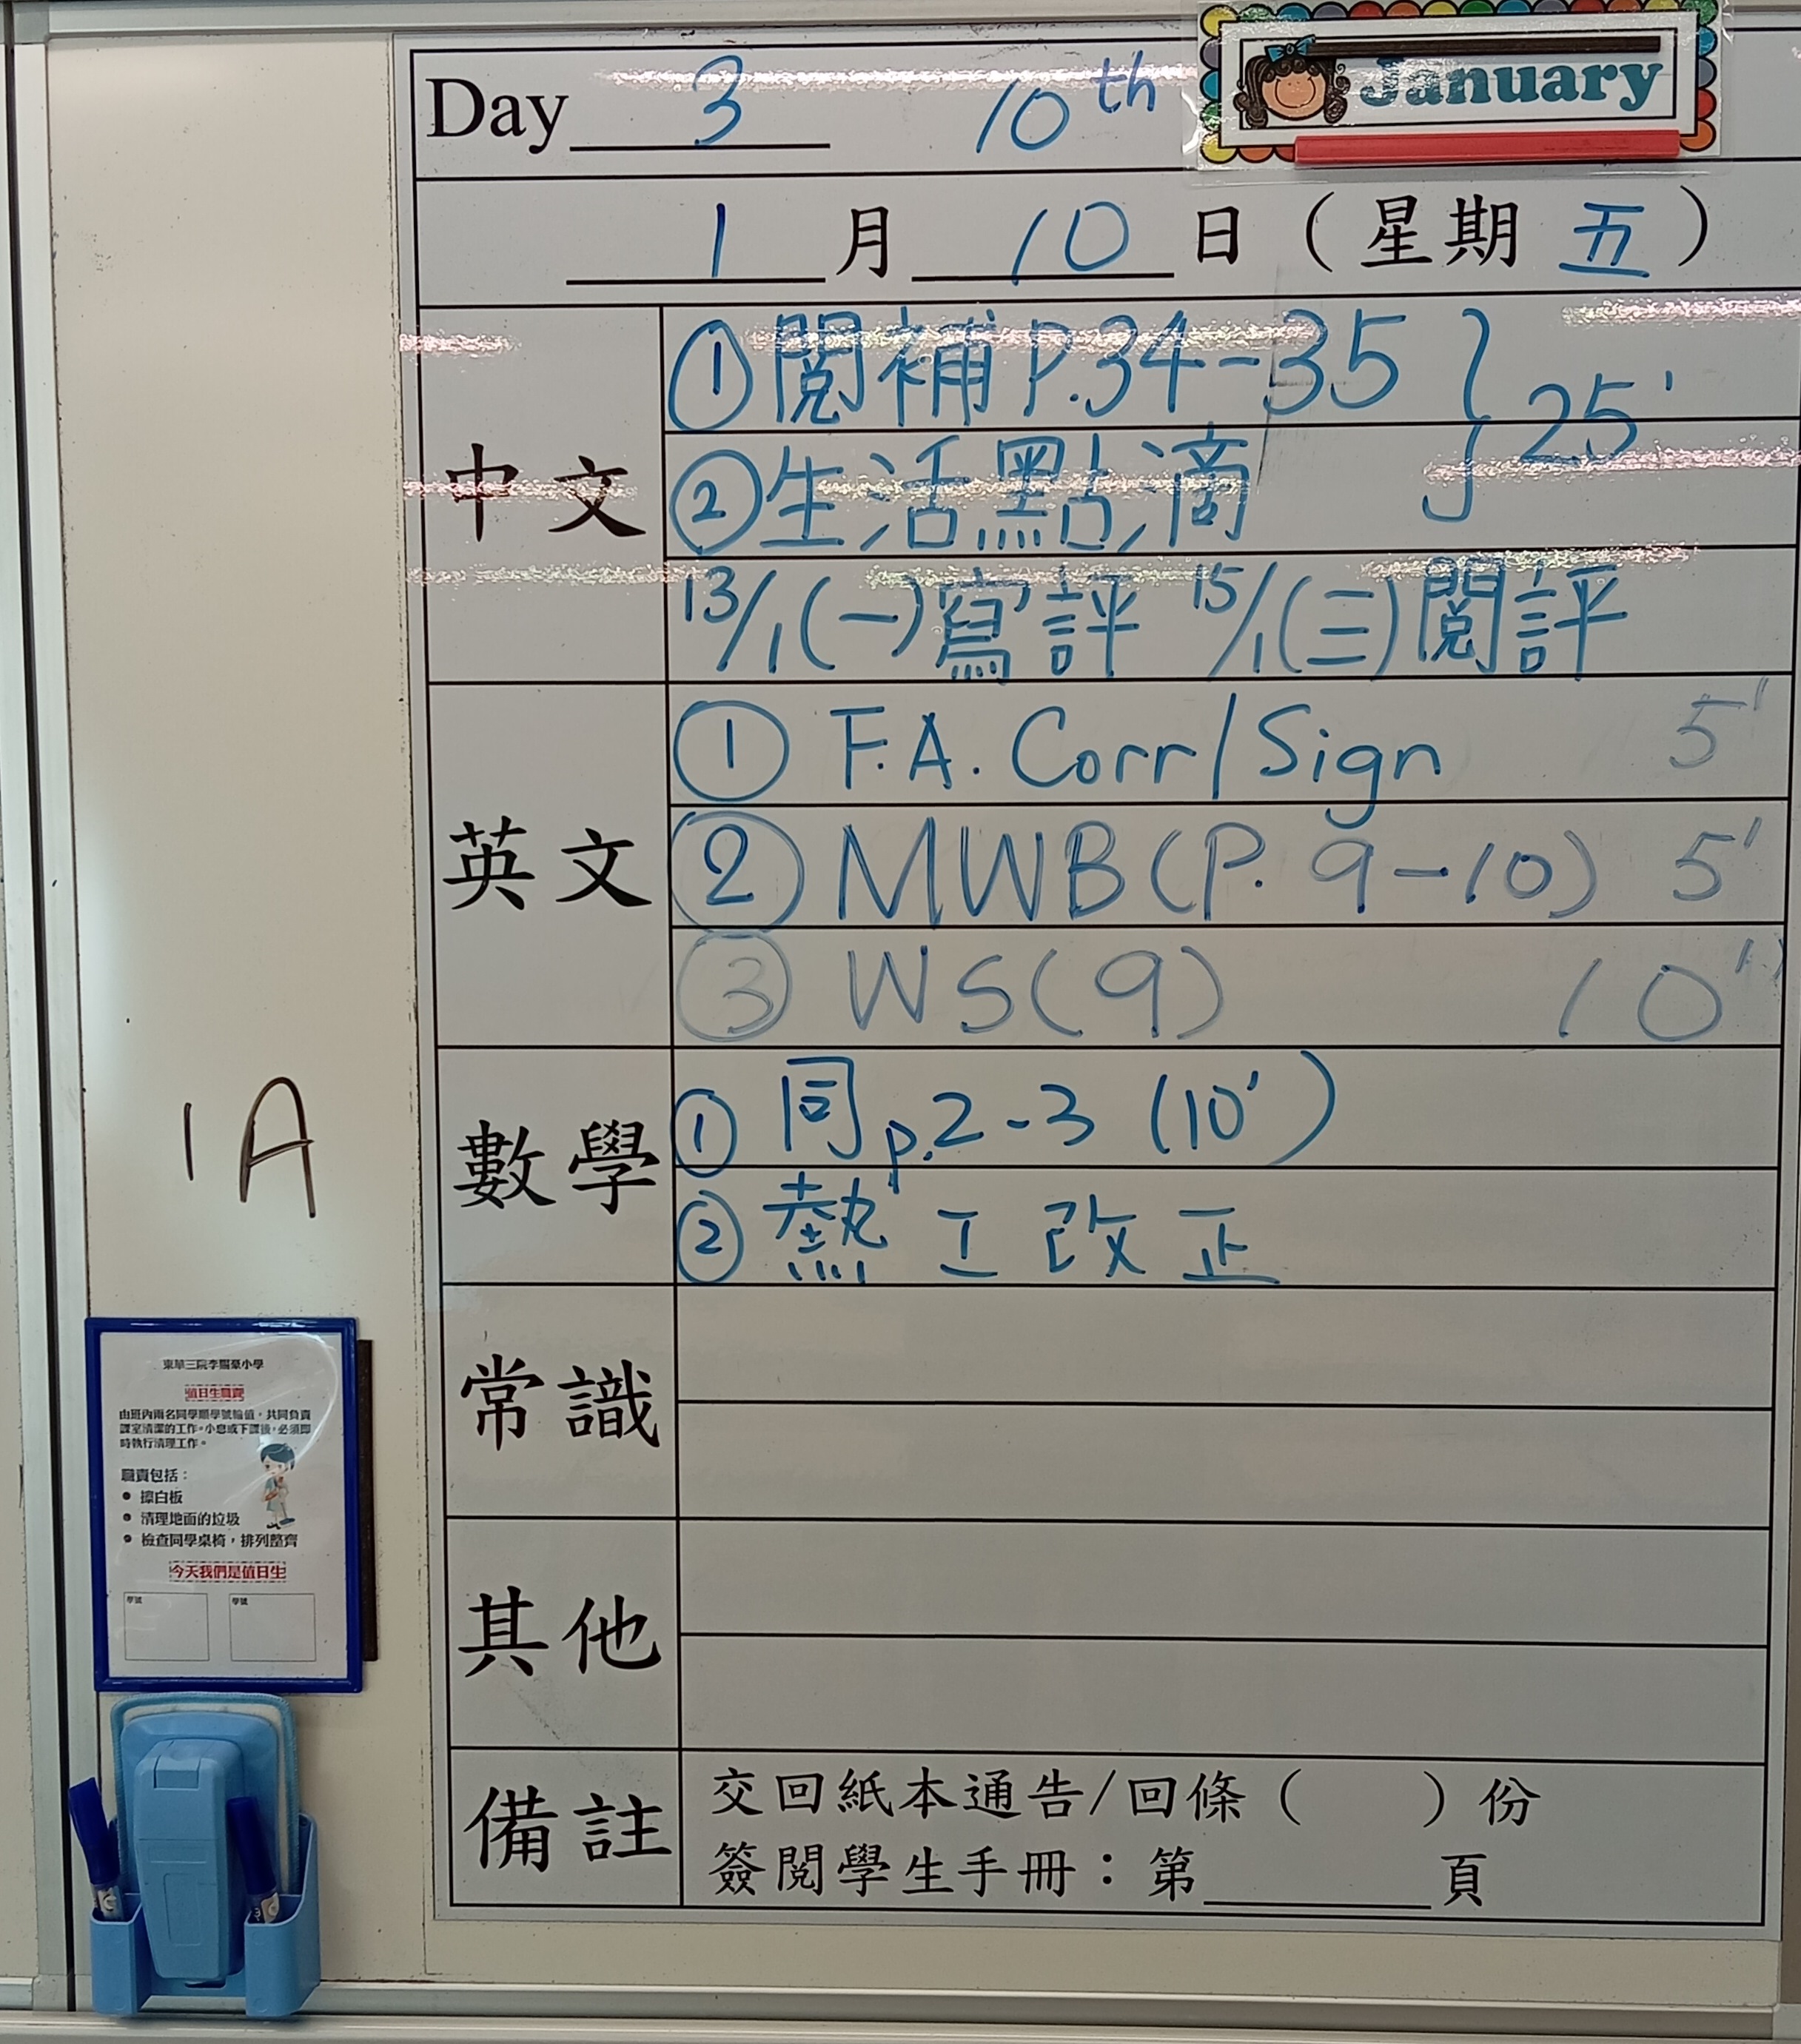 Day 3 10th January
1月10日（星期五）
中文
①閱補P.34-35 } 25'
②生活點滴
13/1(一)寫評 15/1(三)閱評
英文
① F.A. Corr/Sign 5'
② MWB(P. 9-10) 5'
③ WS(9) 10'
數學
① 同p.2-3 (10')
② 熱工改正
常識
其他
備註
交回紙本通告/回條（ ）份
簽閱學生手冊：第____頁
1A
東華三院李賜豪小學
值日生職責
由班內兩名同學順學號輪值，共同負責
課室清潔的工作。小息或下課後，必須即
時執行清理工作。
職責包括：
• 擦白板
• 清理地面的垃圾
• 檢查同學桌椅，排列整齊
今天我們是值日生
學號 學號